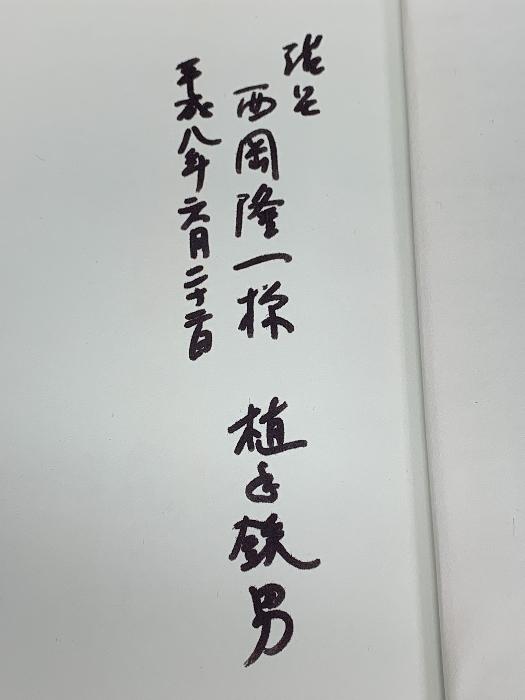 西岡隆一様
鉄男
平成八年六月二十二日